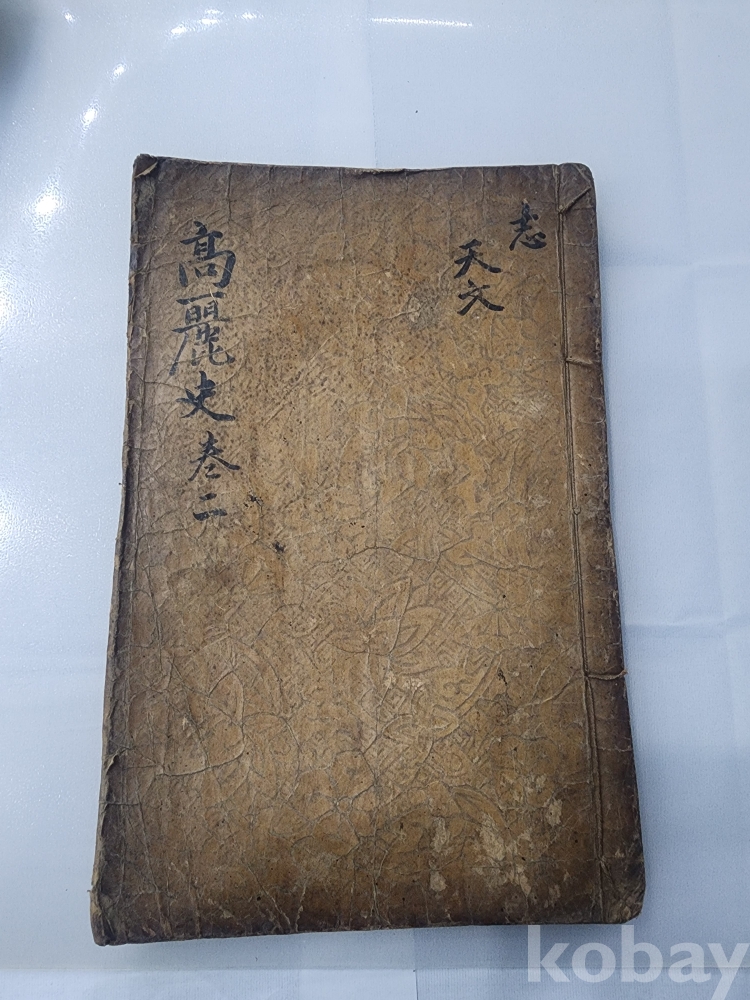 志
天文
高麗史 卷二
kobay